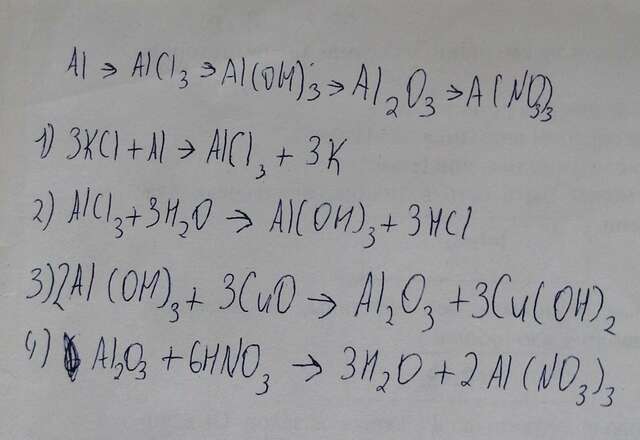 Al → AlCl₃ → Al(OH)₃ → Al₂O₃ → Al(NO₃)₃
1) 3KCl + Al → AlCl₃ + 3K
2) AlCl₃ + 3H₂O → Al(OH)₃ + 3HCl
3) 2Al(OH)₃ + 3CuO → Al₂O₃ + 3Cu(OH)₂
4) Al₂O₃ + 6HNO₃ → 3H₂O + 2Al(NO₃)₃